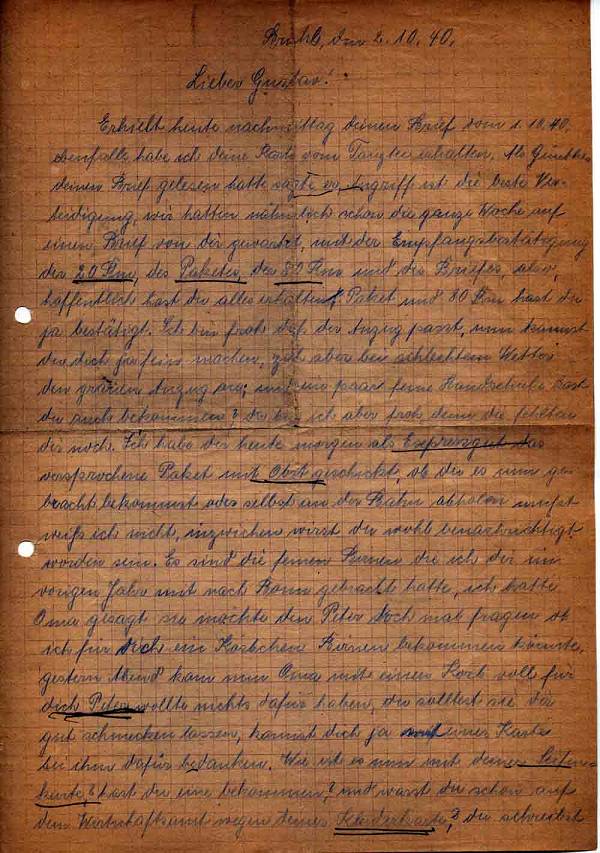 Brühl, den 2.10.40.
Lieber Gustav!
Erhielt heute nachmittag deinen Brief vom 1.10.40,
ebenfalls habe ich deine Karte vom erhalten. Als Günther
deinen Brief gelesen hatte sagte er, Angriff ist die beste Ver-
teidigung, wir hatten nähmlich schon die ganze Woche auf
einen Brief von dir gewartet, mit der Empfangsbestätigung
der 20 Rm, des Paketes, der 80 Rm und des Briefes, also,
hoffentlich hast du alles erhalten, Paket und 80 Rm hast du
ja bestätigt. Ich bin froh daß der Anzug passt, nun kannst
du dich ja fein machen, zieh aber bei schlechtem Wetter
den grauen Anzug an; und ein paar feine Handschuhe hast
du auch bekommen? da bin ich aber froh denn die fehlten
dir noch. Ich habe dir heute morgen als Expressgut das
versprochene Paket mit Obst geschickt, ob du es nun ge-
bracht bekommst oder selbst an der Bahn abholen mußt
weiß ich nicht, inzwischen wirst du wohl benachrichtigt
worden sein. Es sind die feinen Birnen die ich dir im
vorigen Jahr mit nach Bonn gebracht hatte, ich hatte
Oma gesagt sie möchte den Peter doch mal fragen ob
ich für dich ein Körbchen Birnen bekommen könnte,
gestern Abend kam nun Oma mit einem Korb voll für
dich Peter wollte nichts dafür haben, du solltest sie dir
gut schmecken lassen, kannst dich ja mit einer Karte
bei ihm dafür bedanken. Wie ist es nun mit deiner Seifen-
karte? hast du eine bekommen? und warst du schon auf
dem Wirtschaftsamt wegen deiner Kleiderkarte? du schreibst